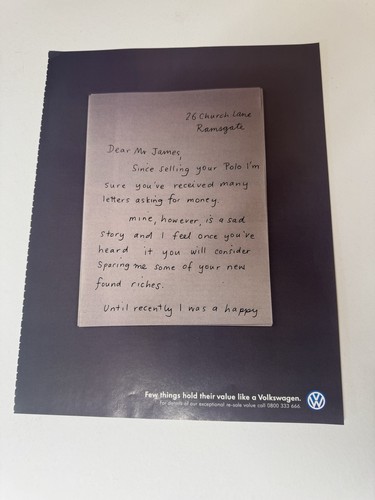 26 Church Lane
Ramsgate
Dear Mr James,
Since selling your Polo I'm
sure you've received many
letters asking for money.
mine, however, is a sad
story and I feel once you've
heard it you will consider
sparing me some of your new
found riches.
Until recently I was a happy
Few things hold their value like a Volkswagen.
For details of our exceptional re-sale value call 0800 333 666.